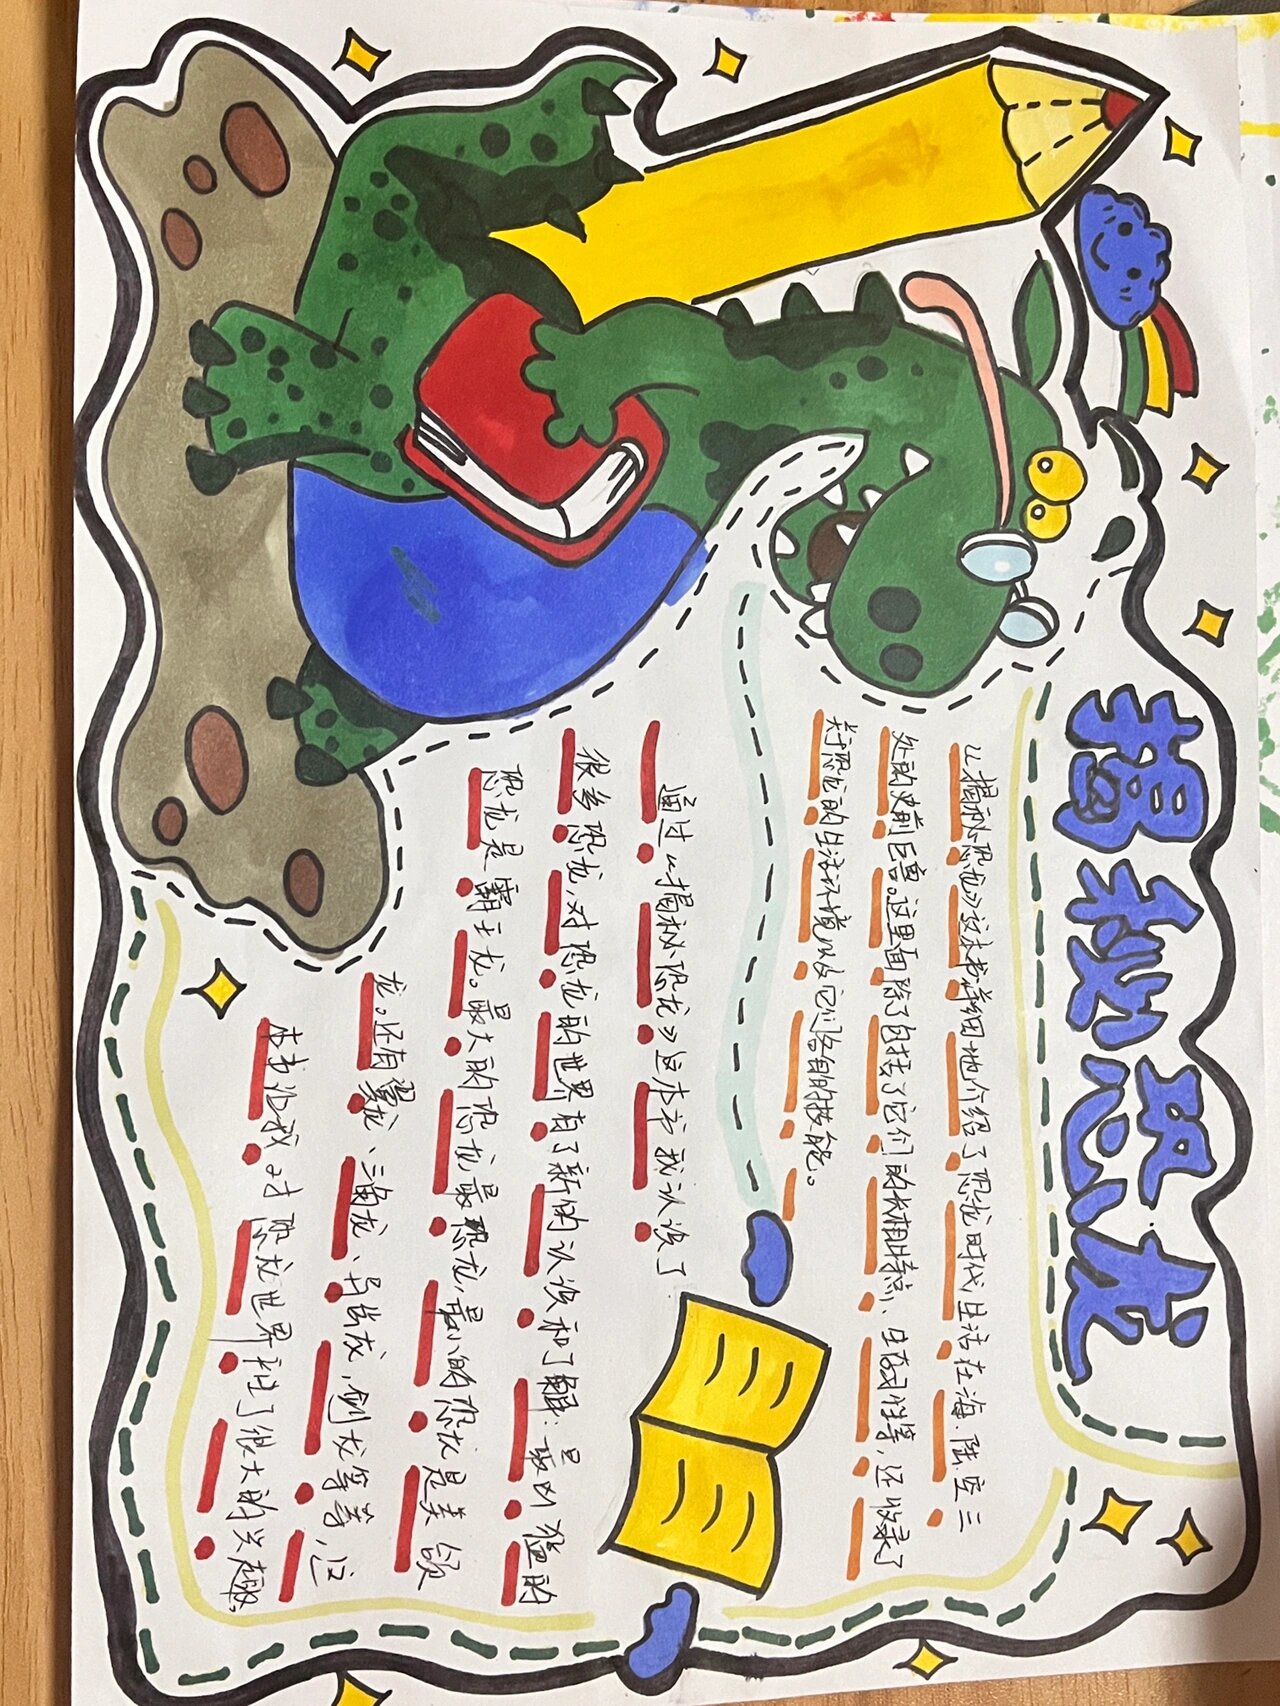 揭秘恐龙
《揭秘恐龙》这本书详细地介绍了恐龙时代,生活在海、陆、空三
处的史前巨兽。这里面除了包括了它们的长相特点、生态习性等,还收录了
关于恐龙的生活环境以及它们各自的技能。
通过《揭秘恐龙》这本书我认识了
很多恐龙,对恐龙的世界有了新的认识和了解:最凶猛的
恐龙是霸王龙。最大的恐龙最恐龙,最小的恐龙是美颌
龙。还有翼龙、三角龙、马门龙,剑龙等等,这
本书让我对恐龙世界产生了很大的兴趣。